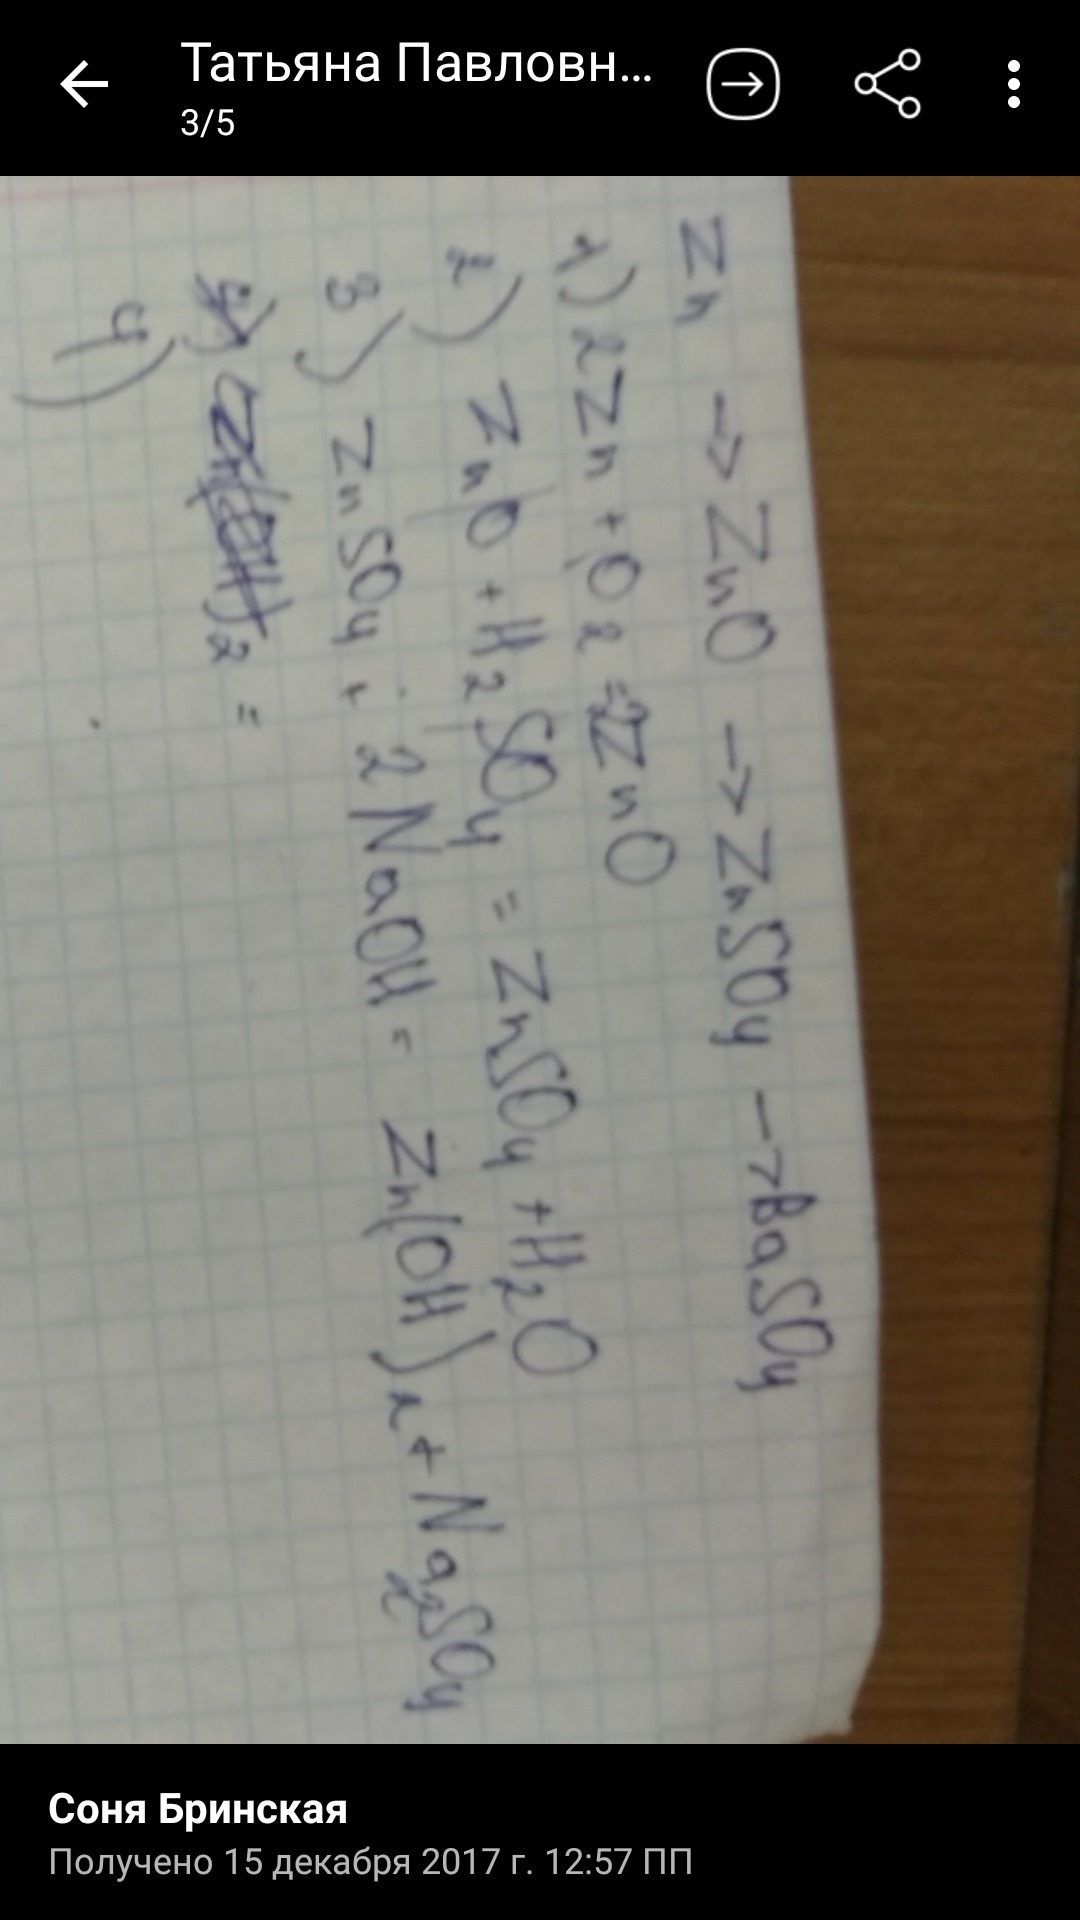 Татьяна Павловн...
3/5
Zn → ZnO → ZnSO4 → BaSO4
1) 2Zn + O2 = 2ZnO
2) ZnO + H2SO4 = ZnSO4 + H2O
3) ZnSO4 + 2NaOH = Zn(OH)2 + Na2SO4
4) Zn(OH)2 =
4)
Соня Бринская
Получено 15 декабря 2017 г. 12:57 ПП